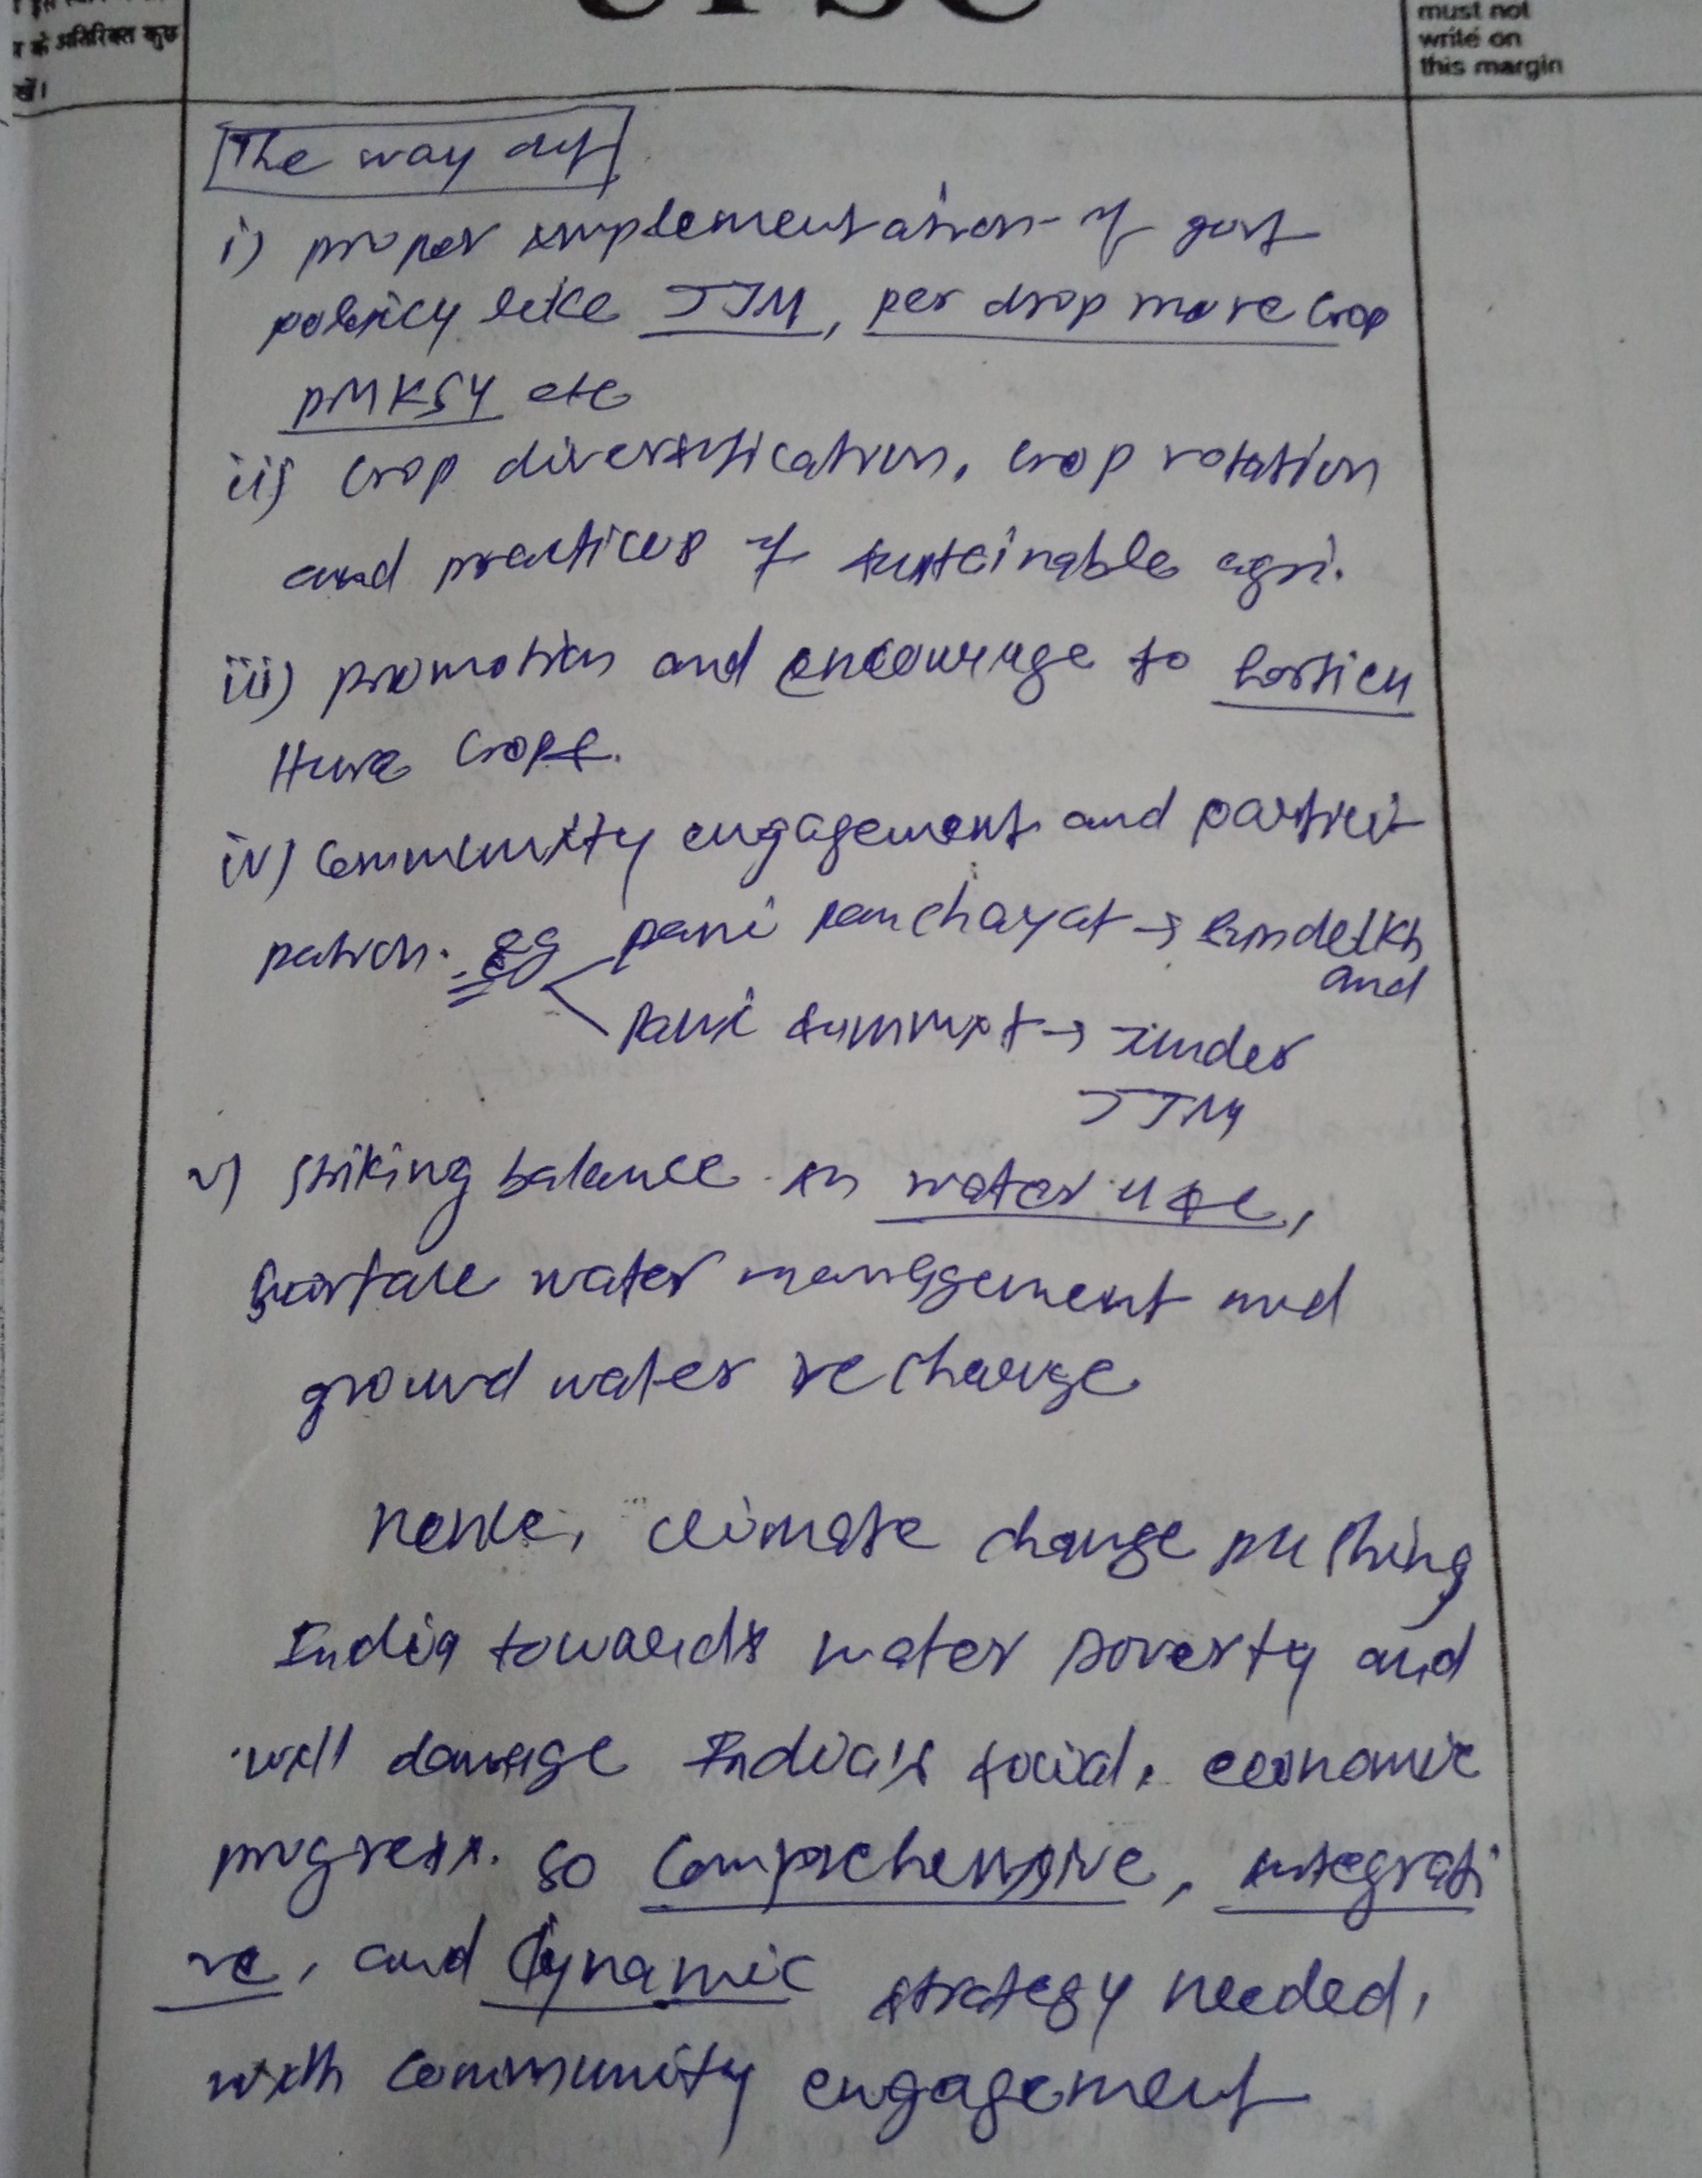 UPSC
के अतिरिक्त कुछ
must not
write on
this margin
The way out
i) proper implementation of govt
policy like JJM, per drop more crop
PMKSY etc
ii) crop diversification, crop rotation
and practices of sustainable agri.
iii) promotion and encourage to horticu
lture crops.
iv) Community engagement and partici-
pation. eg pani panchayat → Bundelkh
and
pani summit → under
JJM
v) striking balance in water use,
surface water management and
ground water recharge
Hence, climate change pushing
India towards water poverty and
will damage India's social, economic
progress. So comprehensive, integrati
ve, and dynamic strategy needed,
with community engagement